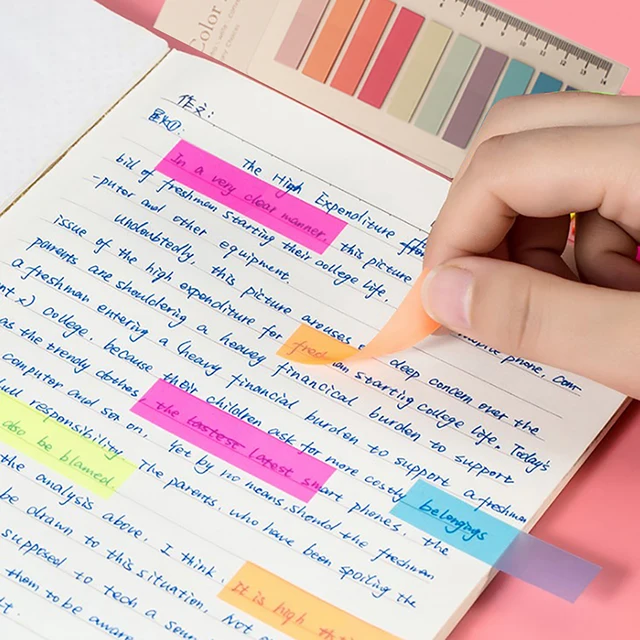 Color
6 7 8 9 10 11 12 13 14
作文:
The High Expenditure
In a very clear manner, this picture mobile phone, com
bill of freshman starting their college life,
-puter and other equipment.
Undoubtedly, this picture arouses deep concern over the
issue of the high expenditure for freshman starting college life. Today's
parents are shouldering a heavey financical burden to support
a freshman entering a (heavy financial burden to support a freshman
nt x) college, because their children ask for more costly belongings
as the trendy clothes, the lastest latest smart phones, the
computer and so on, Yet by no means, should the freshman
full responsibility The parents, who have been spoiling the
also be blamed.
the analysis above, I think, It is high
be drawn to this situation, Not
supposed to tech a
them to be aware
t.